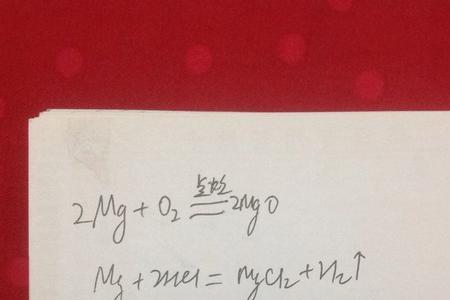 2Mg + O₂ 点燃 2MgO
Mg + 2HCl = MgCl₂ + H₂↑